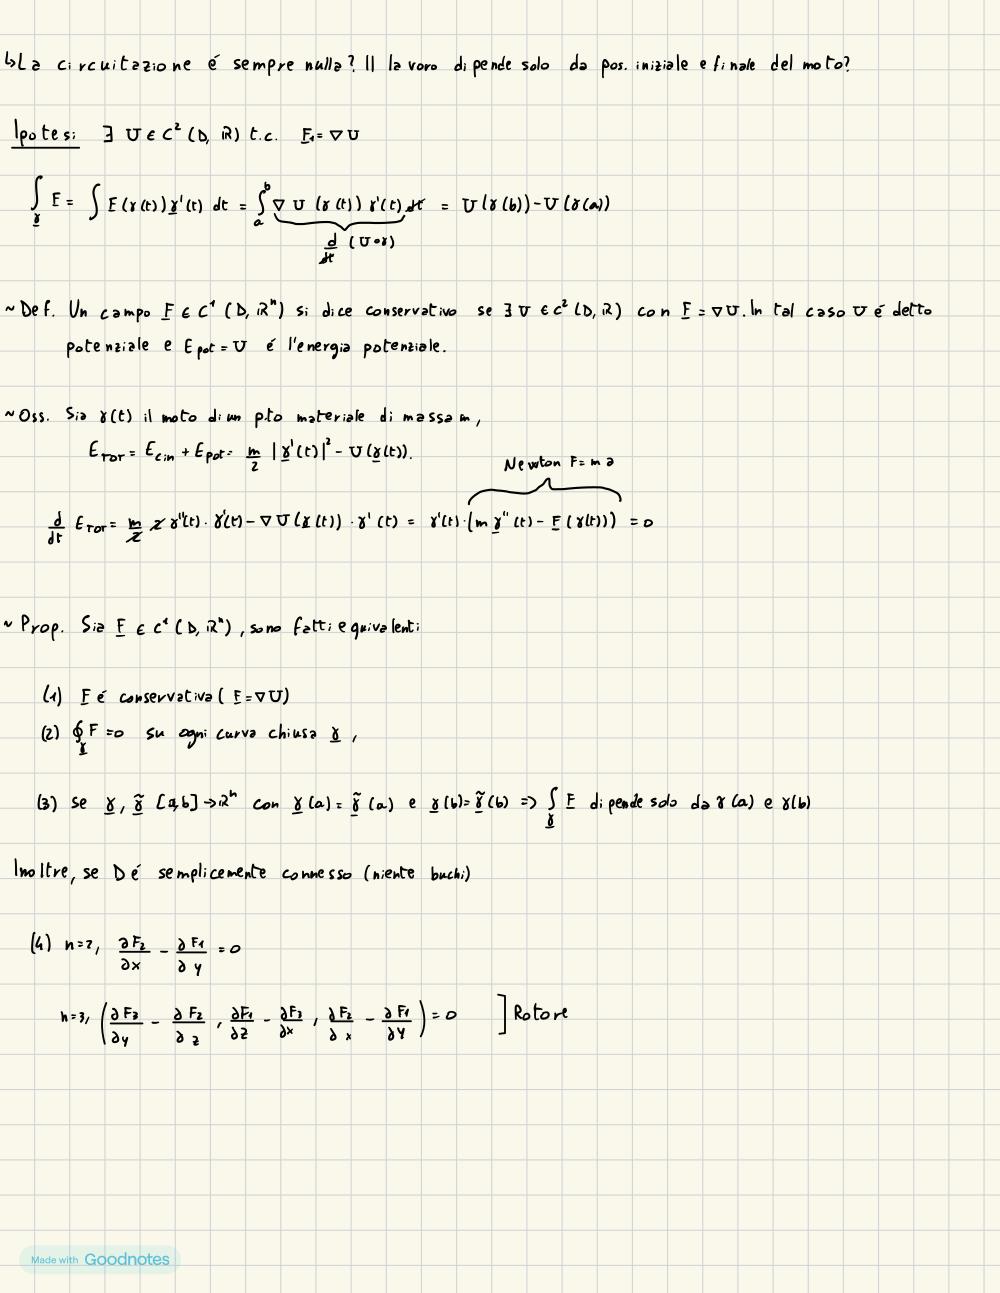 ↳La circuitazione é sempre nulla? Il lavoro dipende solo da pos. iniziale e finale del moto?
Ipotesi ∃ U ∈ C² (D, ℝ) t.c. F₁ = ∇U
∫_γ F = ∫ F(γ(t)) γ'(t) dt = ∫_a^b ∇U (γ(t)) γ'(t) dt = U(γ(b)) - U(γ(a))
d/dt (U∘γ)
~ Def. Un campo F ∈ C¹ (D, ℝⁿ) si dice conservativo se ∃ U ∈ C² (D, ℝ) con F = ∇U. In tal caso U é detto
potenziale e E_pot = U é l'energia potenziale.
~ Oss. Sia γ(t) il moto di un p.to materiale di massa m,
E_TOT = E_cin + E_pot = m/2 |γ'(t)|² - U(γ(t)).
Newton F = m a
d/dt E_TOT = m/2 2 γ''(t) · γ'(t) - ∇U(γ(t)) · γ'(t) = γ'(t) · (m γ''(t) - F(γ(t))) = 0
~ Prop. Sia F ∈ C¹ (D, ℝⁿ), sono fatti equivalenti
(1) F é conservativa ( F = ∇U)
(2) ∮_γ F = 0 su ogni curva chiusa γ,
(3) se γ, γ̃ [a,b] → ℝⁿ con γ(a) = γ̃(a) e γ(b) = γ̃(b) => ∫_γ F dipende solo da γ(a) e γ(b)
Inoltre, se D é semplicemente connesso (niente buchi)
(4) n=2, ∂F₂/∂x - ∂F₁/∂y = 0
n=3, (∂F₃/∂y - ∂F₂/∂z, ∂F₁/∂z - ∂F₃/∂x, ∂F₂/∂x - ∂F₁/∂y) = 0 ] Rotore
Made with Goodnotes